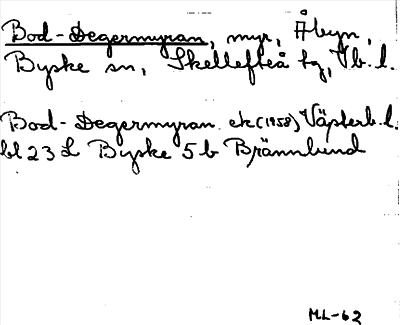 Bod-Degermyran, myr, Åbyn,
Byske sn, Skellefteå tg, Vb. l.
Bod-Degermyran ek (1958) Västerb. l.
bl 23 L Byske 5 b Brännlund
ML-62